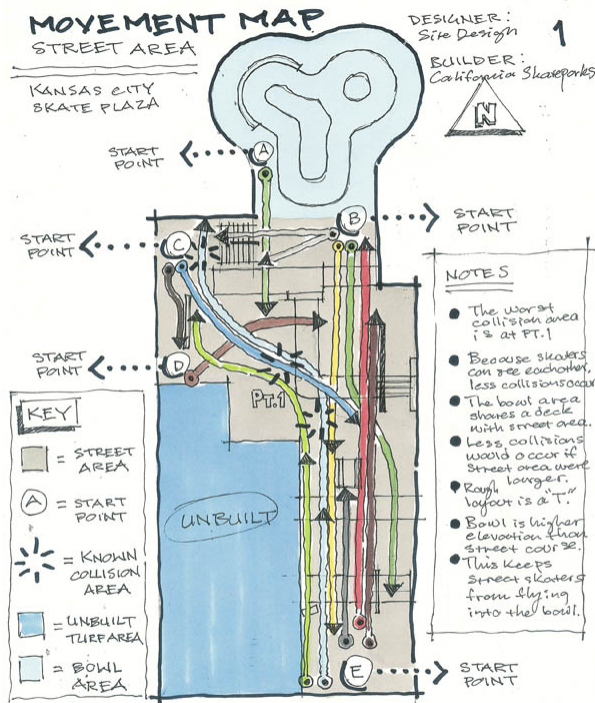 MOVEMENT MAP
STREET AREA
KANSAS CITY
SKATE PLAZA
DESIGNER:
Site Design
BUILDER:
California Skateparks
1
N
START
POINT
A
B
START
POINT
START
POINT
C
START
POINT
D
PT.1
UNBUILT
E
START
POINT
KEY
= STREET
AREA
A = START
POINT
= KNOWN
COLLISION
AREA
= UNBUILT
TURF AREA
= BOWL
AREA
NOTES
The worst
collision area
is at PT.1
Because skaters
can see eachother,
less collisions occur
The bowl area
shares a deck
with street area.
Less collisions
would occur if
street area were
larger.
Rough
layout is a "T."
Bowl is higher
elevation than
street course.
This keeps
street skaters
from flying
into the bowl.